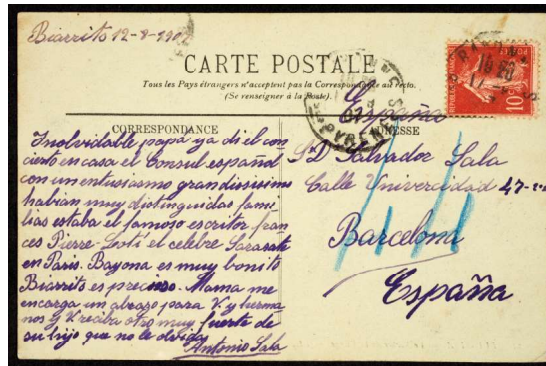 Biarrits 12-8-1907
CARTE POSTALE
Tous les Pays étrangers n'acceptent pas la Correspondance au recto.
(Se renseigner à la Poste).
España
CORRESPONDANCE
ADRESSE
Inolvidable papá ya di el con
cierto en casa el Consul español
con un entusiasmo grandissisimo
habian muy distinguidas fami
lias estaba el famoso escritor fran
ces Pierre-Loti el celebre Sarasate
en Paris. Bayona es muy bonito
Biarrits es precioso. Mama me
encarga un abrazo para V. y herma
nos y V. reciba otro muy fuerte de
su hijo que no le olvida
Antonio Sala
Sr D Salvador Sala
Calle Univercidad 47
Barcelona
España
10